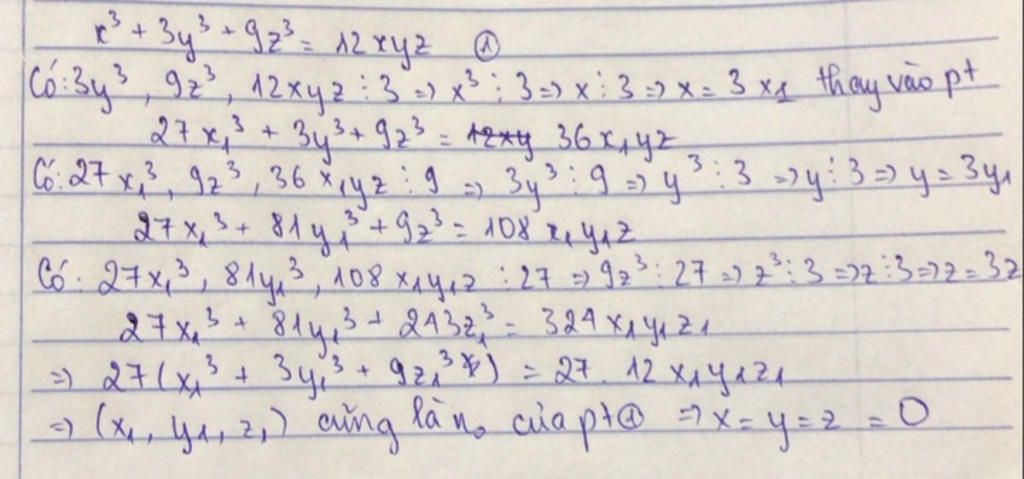 x³ + 3y³ + 9z³ = 12xyz ①
Có: 3y³, 9z³, 12xyz ⋮ 3 => x³ ⋮ 3 => x ⋮ 3 => x = 3x₁ thay vào pt
27x₁³ + 3y³ + 9z³ = 12xy 36x₁yz
Có: 27x₁³, 9z³, 36x₁yz ⋮ 9 => 3y³ ⋮ 9 => y³ ⋮ 3 => y ⋮ 3 => y = 3y₁
27x₁³ + 81y₁³ + 9z³ = 108x₁y₁z
Có: 27x₁³, 81y₁³, 108x₁y₁z ⋮ 27 => 9z³ ⋮ 27 => z³ ⋮ 3 => z ⋮ 3 => z = 3z
27x₁³ + 81y₁³ + 243z₁³ = 324x₁y₁z₁
=> 27(x₁³ + 3y₁³ + 9z₁³) = 27. 12x₁y₁z₁
=> (x₁, y₁, z₁) cũng là n₀ của pt① => x = y = z = 0